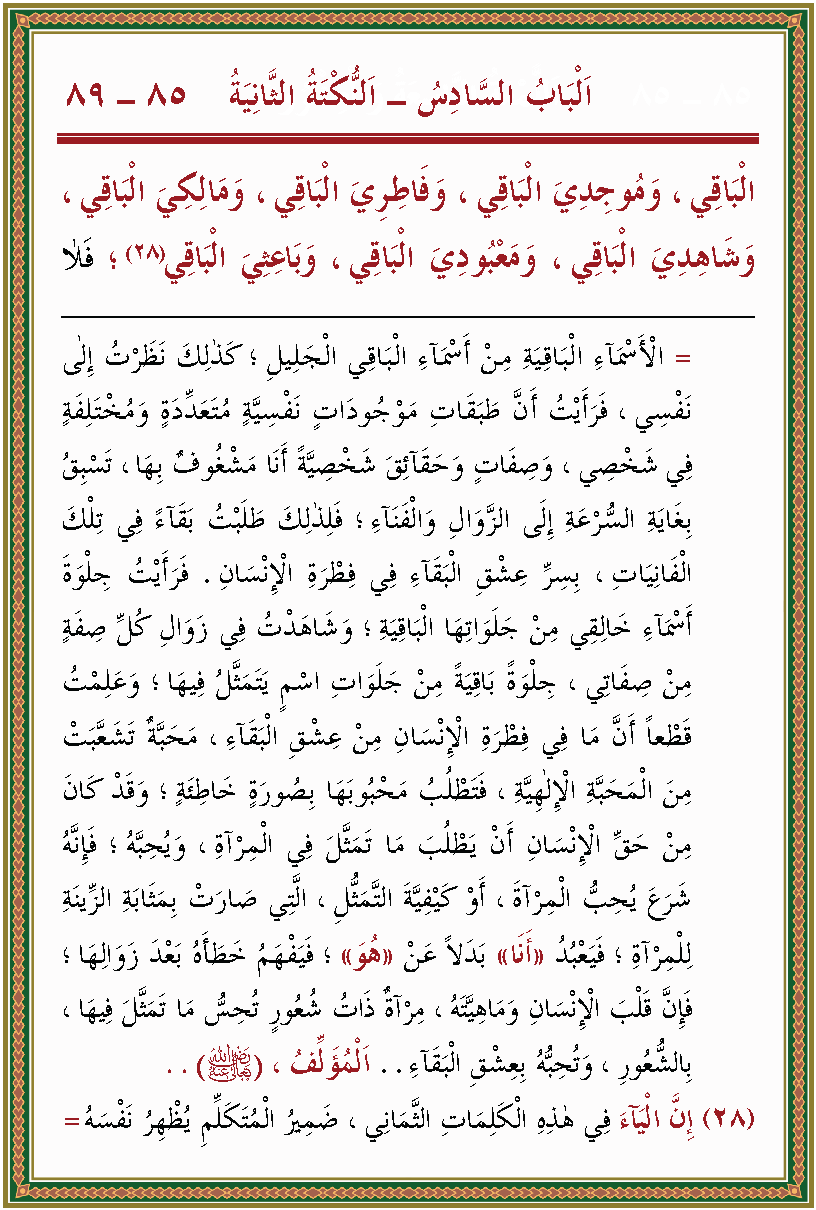 اَلْبَابُ السَّادِسُ ــ اَلنُّكْتَةُ الثَّانِيَةُ ٨٥ ــ ٨٩
الْبَاقِي ، وَمُوجِدِيَ الْبَاقِي ، وَفَاطِرِيَ الْبَاقِي ، وَمَالِكِيَ الْبَاقِي ،
وَشَاهِدِيَ الْبَاقِي ، وَمَعْبُودِيَ الْبَاقِي ، وَبَاعِثِيَ الْبَاقِي(٢٨) ؛ فَلاٰ
= الْأَسْمَآءِ الْبَاقِيَةِ مِنْ أَسْمَآءِ الْبَاقِي الْجَلِيلِ ؛ كَذٰلِكَ نَظَرْتُ إِلٰى
نَفْسِي ، فَرَأَيْتُ أَنَّ طَبَقَاتِ مَوْجُودَاتٍ نَفْسِيَّةٍ مُتَعَدِّدَةٍ وَمُخْتَلِفَةٍ
فِي شَخْصِي ، وَصِفَاتٍ وَحَقَآئِقَ شَخْصِيَّةً أَنَا مَشْغُوفٌ بِهَا ، تَسْبِقُ
بِغَايَةِ السُّرْعَةِ إِلَى الزَّوَالِ وَالْفَنَآءِ ؛ فَلِذٰلِكَ طَلَبْتُ بَقَآءً فِي تِلْكَ
الْفَانِيَاتِ ، بِسِرِّ عِشْقِ الْبَقَآءِ فِي فِطْرَةِ الْإِنْسَانِ . فَرَأَيْتُ جِلْوَةَ
أَسْمَآءِ خَالِقِي مِنْ جَلَوَاتِهَا الْبَاقِيَةِ ؛ وَشَاهَدْتُ فِي زَوَالِ كُلِّ صِفَةٍ
مِنْ صِفَاتِي ، جِلْوَةً بَاقِيَةً مِنْ جَلَوَاتِ اسْمٍ يَتَمَثَّلُ فِيهَا ؛ وَعَلِمْتُ
قَطْعاً أَنَّ مَا فِي فِطْرَةِ الْإِنْسَانِ مِنْ عِشْقِ الْبَقَآءِ ، مَحَبَّةٌ تَشَعَّبَتْ
مِنَ الْمَحَبَّةِ الْإِلٰهِيَّةِ ، فَتَطْلُبُ مَحْبُوبَهَا بِصُورَةٍ خَاطِئَةٍ ؛ وَقَدْ كَانَ
مِنْ حَقِّ الْإِنْسَانِ أَنْ يَطْلُبَ مَا تَمَثَّلَ فِي الْمِرْآةِ ، وَيُحِبَّهُ ؛ فَإِنَّهُ
شَرَعَ يُحِبُّ الْمِرْآةَ ، أَوْ كَيْفِيَّةَ التَّمَثُّلِ ، الَّتِي صَارَتْ بِمَثَابَةِ الزِّينَةِ
لِلْمِرْآةِ ؛ فَيَعْبُدُ «أَنَا» بَدَلاً عَنْ «هُوَ» ؛ فَيَفْهَمُ خَطَأَهُ بَعْدَ زَوَالِهَا ؛
فَإِنَّ قَلْبَ الْإِنْسَانِ وَمَاهِيَّتَهُ ، مِرْآةٌ ذَاتُ شُعُورٍ تُحِسُّ مَا تَمَثَّلَ فِيهَا ،
بِالشُّعُورِ ، وَتُحِبُّهُ بِعِشْقِ الْبَقَآءِ . . اَلْمُؤَلِّفُ ، (رَضِيَ اللهُ تَعَالَى عَنْهُ) . .
(٢٨) إِنَّ الْيَآءَ فِي هٰذِهِ الْكَلِمَاتِ الثَّمَانِي ، ضَمِيرُ الْمُتَكَلِّمِ يُظْهِرُ نَفْسَهُ =